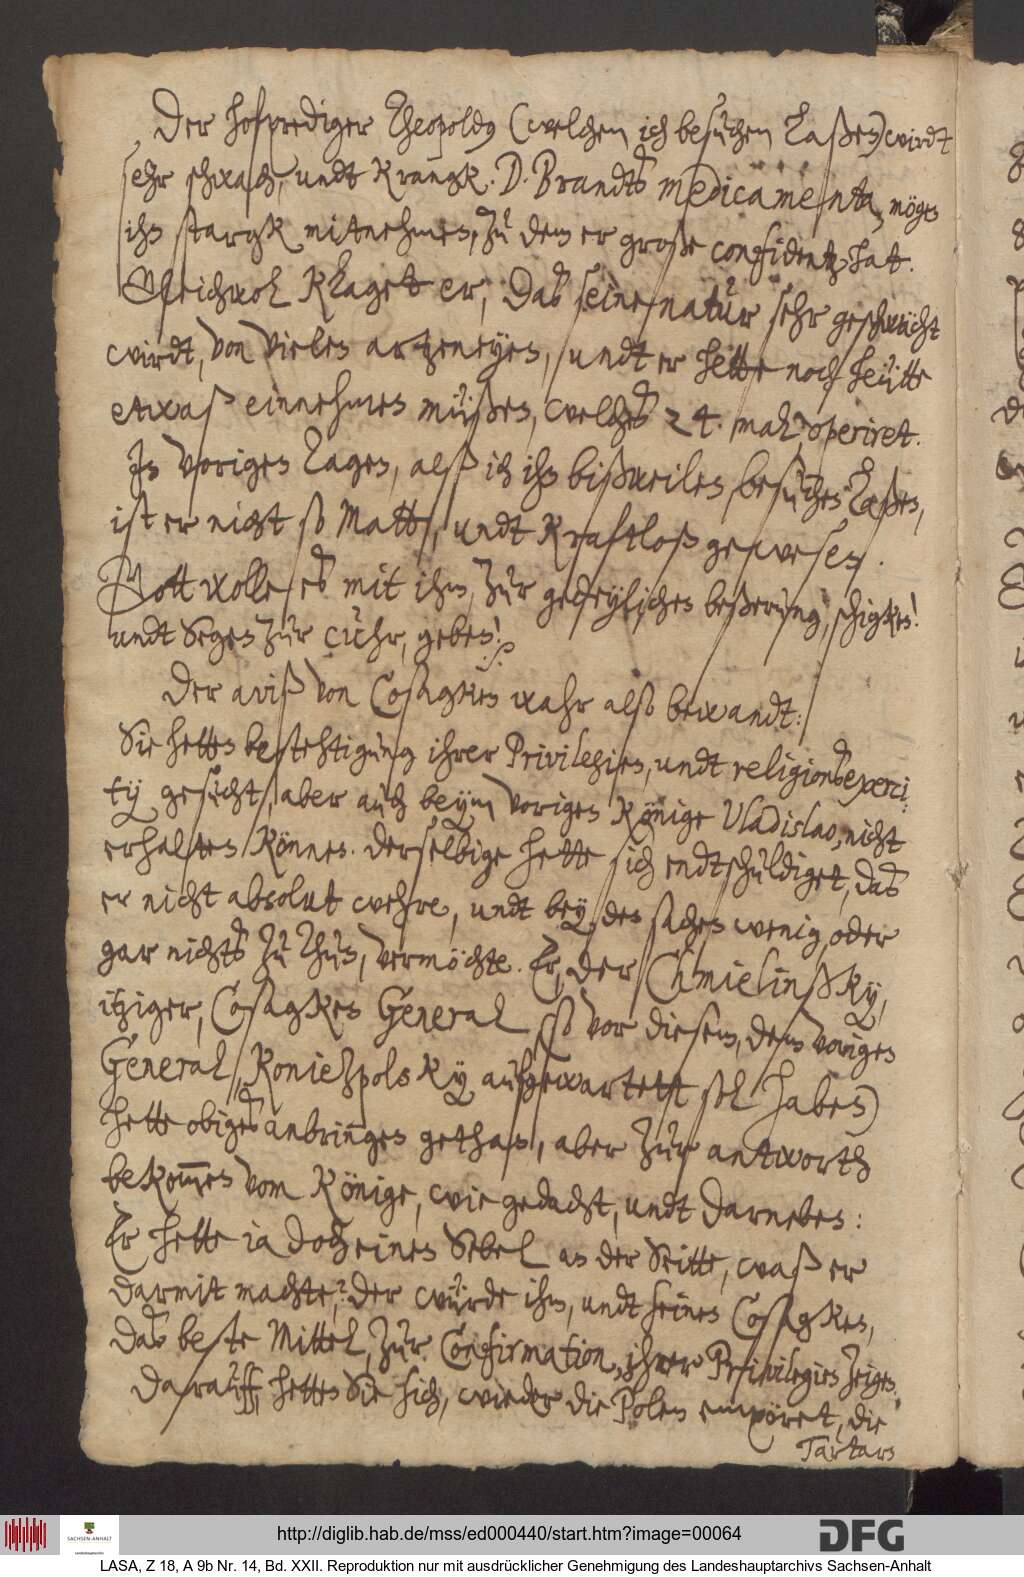 Der hofprediger Theopoldus (welchen ich besuchen laßen) wirdt
sehr schwach, undt Krangk. D. Brandts medicamenta, mögen
ihn stargk mitnehmen, zu dem er große confidentz hat.
Gleichwol klaget er, das seine natur sehr geschwächt
wirdt, von vielen artzeneyen, undt er hette noch heütte
etwaß einnehmen müßen, welches 24. mahl, operiret.
In vorigen Tagen, alß ich ihn bißweilen besuchen laßen,
ist er nicht so Matt, undt Kraftloß gewesen.
Gott wolle es mit ihm, zur gedeylichen beßerung, schigken!
undt Segen zur cuhr, geben!
Der aviß von Cosagken wahr also bewandt:
Sie hetten bestehtigung ihrer Privilegien, undt religionsexerci-
tij gesucht, aber auch beym vorigen Könige Vladislao, nicht
erhalten können. Derselbige hette sich endtschuldiget, das
er nicht absolut wehre, undt bey den sachen wenig, oder
gar nichts zu thun, vermöchte. Er, der Chmielinßky,
itziger, Cosagken General (so vor diesem, dem vorigen
General, Koniezpolsky aufgewartett sol haben)
hette obiges anbringen gethan, aber zur antworth
bekommen vom Könige, wie gedacht, undt darneben:
Er hette ia doch einen Sebel an der Seitte, waß er
darmit machte? der würde ihm, undt seinen Cosagken,
das beste Mittel, zur Confirmation, ihrer Privilegien zeigen.
Darauff, hetten Sie sich, wieder die Polen empöret, die
Tartarn
http://diglib.hab.de/mss/ed000440/start.htm?image=00064
SACHSEN-ANHALT
DFG
LASA, Z 18, A 9b Nr. 14, Bd. XXII. Reproduktion nur mit ausdrücklicher Genehmigung des Landeshauptarchivs Sachsen-Anhalt